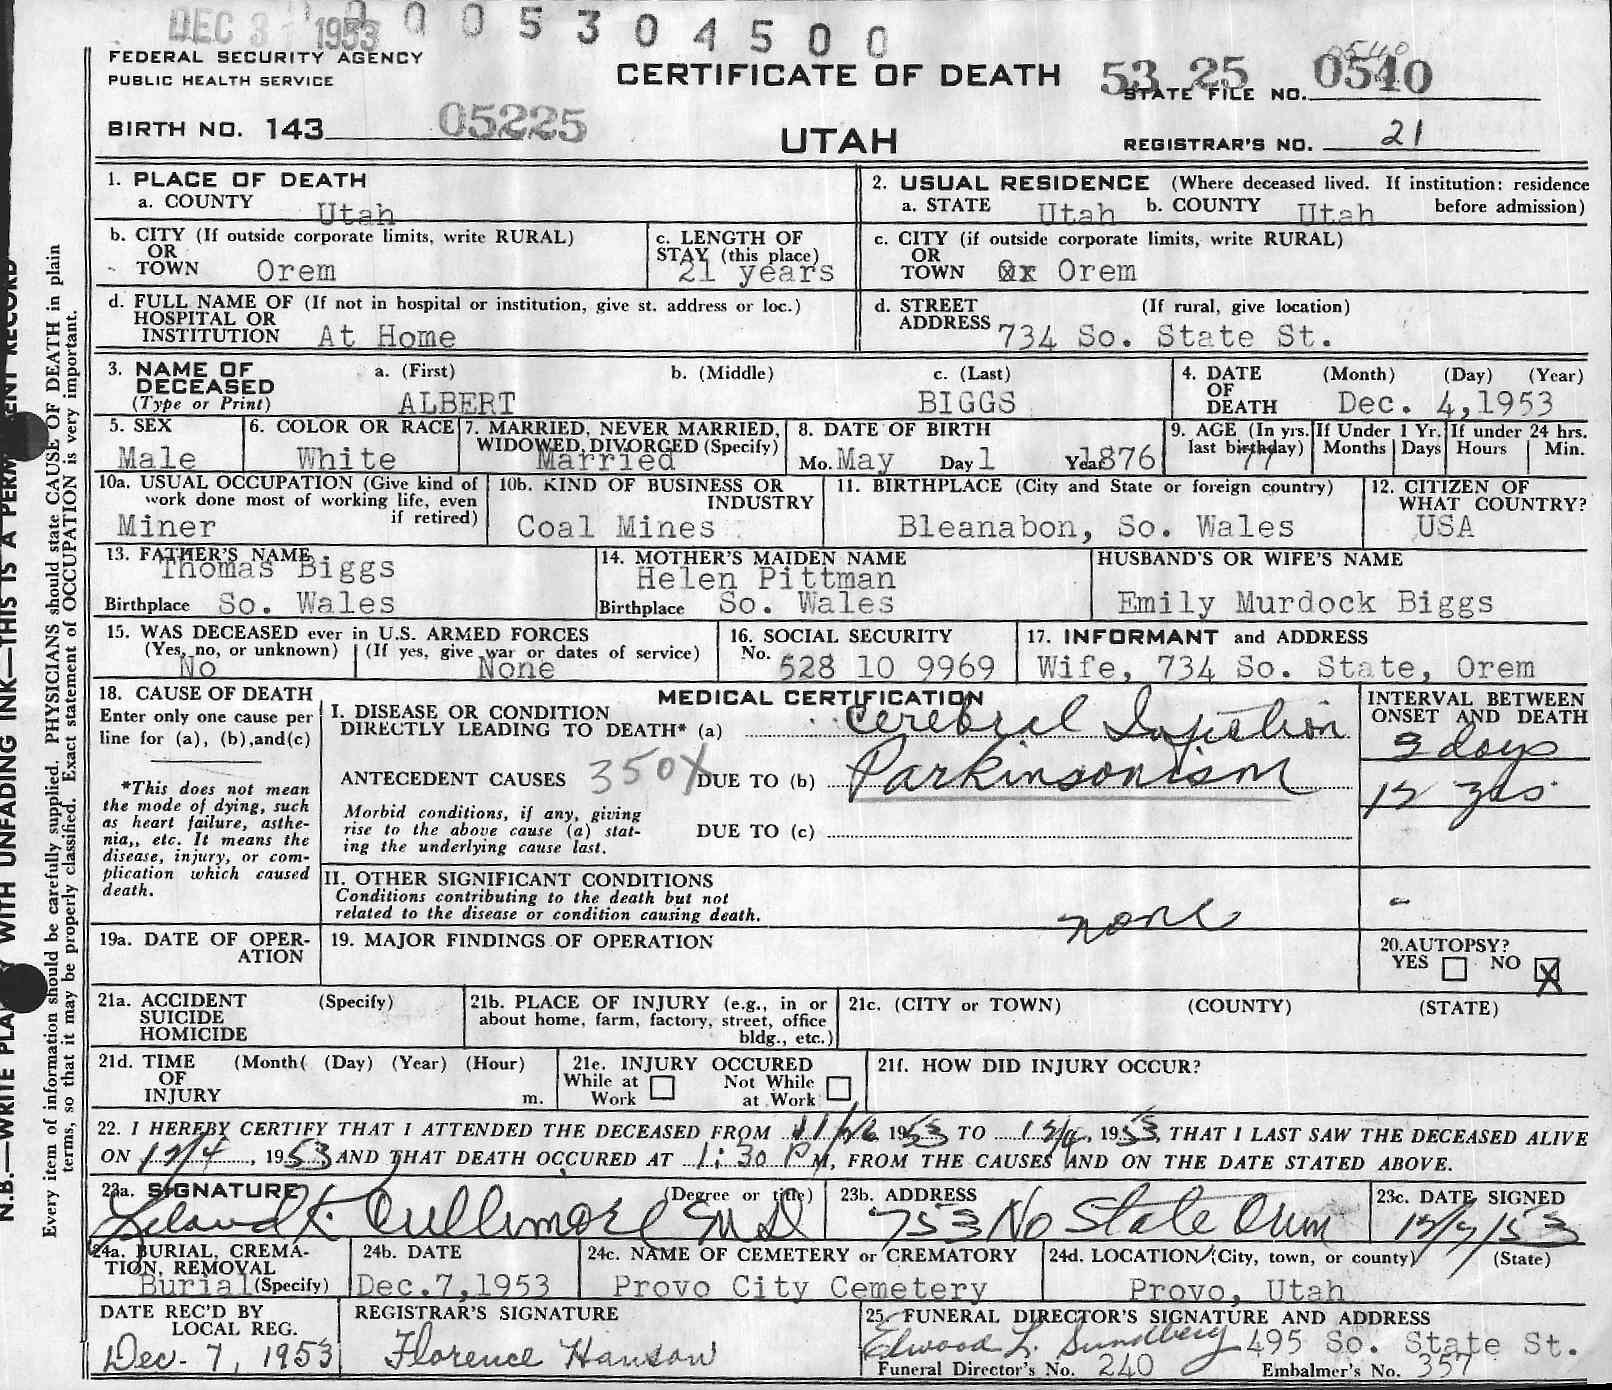 DEC 3 1953 0 0 5 3 0 4 5 0 0
FEDERAL SECURITY AGENCY
PUBLIC HEALTH SERVICE
CERTIFICATE OF DEATH
53 25 0510
0540
STATE FILE NO.
BIRTH NO. 143 05225
UTAH
REGISTRAR'S NO. 21
1. PLACE OF DEATH
a. COUNTY Utah
2. USUAL RESIDENCE (Where deceased lived. If institution: residence before admission)
a. STATE Utah b. COUNTY Utah
b. CITY (If outside corporate limits, write RURAL)
OR
TOWN Orem
c. LENGTH OF
STAY (this place)
21 years
c. CITY (if outside corporate limits, write RURAL)
OR
TOWN Orem
d. FULL NAME OF (If not in hospital or institution, give st. address or loc.)
HOSPITAL OR
INSTITUTION At Home
d. STREET (If rural, give location)
ADDRESS 734 So. State St.
3. NAME OF DECEASED
(Type or Print)
a. (First) b. (Middle) c. (Last)
ALBERT BIGGS
4. DATE OF DEATH (Month) (Day) (Year)
Dec. 4, 1953
5. SEX
Male
6. COLOR OR RACE
White
7. MARRIED, NEVER MARRIED,
WIDOWED, DIVORCED (Specify)
Married
8. DATE OF BIRTH
Mo. May Day 1 Year 1876
9. AGE (In yrs. last birthday)
77
If Under 1 Yr.
Months Days
If under 24 hrs.
Hours Min.
10a. USUAL OCCUPATION (Give kind of
work done most of working life, even
if retired)
Miner
10b. KIND OF BUSINESS OR
INDUSTRY
Coal Mines
11. BIRTHPLACE (City and State or foreign country)
Bleanabon, So. Wales
12. CITIZEN OF
WHAT COUNTRY?
USA
13. FATHER'S NAME
Thomas Biggs
Birthplace So. Wales
14. MOTHER'S MAIDEN NAME
Helen Pittman
Birthplace So. Wales
HUSBAND'S OR WIFE'S NAME
Emily Murdock Biggs
15. WAS DECEASED ever in U.S. ARMED FORCES
(Yes, no, or unknown) (If yes, give war or dates of service)
No None
16. SOCIAL SECURITY
No. 528 10 9969
17. INFORMANT and ADDRESS
Wife, 734 So. State, Orem
18. CAUSE OF DEATH
Enter only one cause per
line for (a), (b), and (c)
*This does not mean
the mode of dying, such
as heart failure, asthe-
nia,, etc. It means the
disease, injury, or com-
plication which caused
death.
MEDICAL CERTIFICATION
I. DISEASE OR CONDITION
DIRECTLY LEADING TO DEATH* (a) Cerebral
ANTECEDENT CAUSES 350X DUE TO (b) Parkinsonism
Morbid conditions, if any, giving
rise to the above cause (a) stat-
ing the underlying cause last.
DUE TO (c)
INTERVAL BETWEEN
ONSET AND DEATH
3 days
12 yrs.
II. OTHER SIGNIFICANT CONDITIONS
Conditions contributing to the death but not
related to the disease or condition causing death.
none
-
19a. DATE OF OPER-
ATION
19. MAJOR FINDINGS OF OPERATION
20. AUTOPSY?
YES NO X
21a. ACCIDENT (Specify)
SUICIDE
HOMICIDE
21b. PLACE OF INJURY (e.g., in or
about home, farm, factory, street, office
bldg., etc.)
21c. (CITY or TOWN) (COUNTY) (STATE)
21d. TIME (Month( (Day) (Year) (Hour)
OF
INJURY m.
21e. INJURY OCCURED
While at Work Not While at Work
21f. HOW DID INJURY OCCUR?
22. I HEREBY CERTIFY THAT I ATTENDED THE DECEASED FROM 1953 TO 12/4, 1953, THAT I LAST SAW THE DECEASED ALIVE
ON 12/4, 1953 AND THAT DEATH OCCURED AT 1:30 P M, FROM THE CAUSES AND ON THE DATE STATED ABOVE.
23a. SIGNATURE (Degree or title)
Leland K. Cullimore M D
23b. ADDRESS
753 No State Orem
23c. DATE SIGNED
12/7/53
24a. BURIAL, CREMA-
TION, REMOVAL
Burial (Specify)
24b. DATE
Dec. 7, 1953
24c. NAME OF CEMETERY or CREMATORY
Provo City Cemetery
24d. LOCATION (City, town, or county) (State)
Provo, Utah
DATE REC'D BY
LOCAL REG.
Dec. 7, 1953
REGISTRAR'S SIGNATURE
Florence Hanson
25. FUNERAL DIRECTOR'S SIGNATURE AND ADDRESS
Elwood L. Sundberg 495 So. State St.
Funeral Director's No. 240 Embalmer's No. 357
N.B.—WRITE WITH UNFADING INK—THIS IS A RECORD
Every item of information should be carefully supplied. PHYSICIANS should state CAUSE OF DEATH in plain
terms, so that it may be properly classified. Exact statement of OCCUPATION is very important.